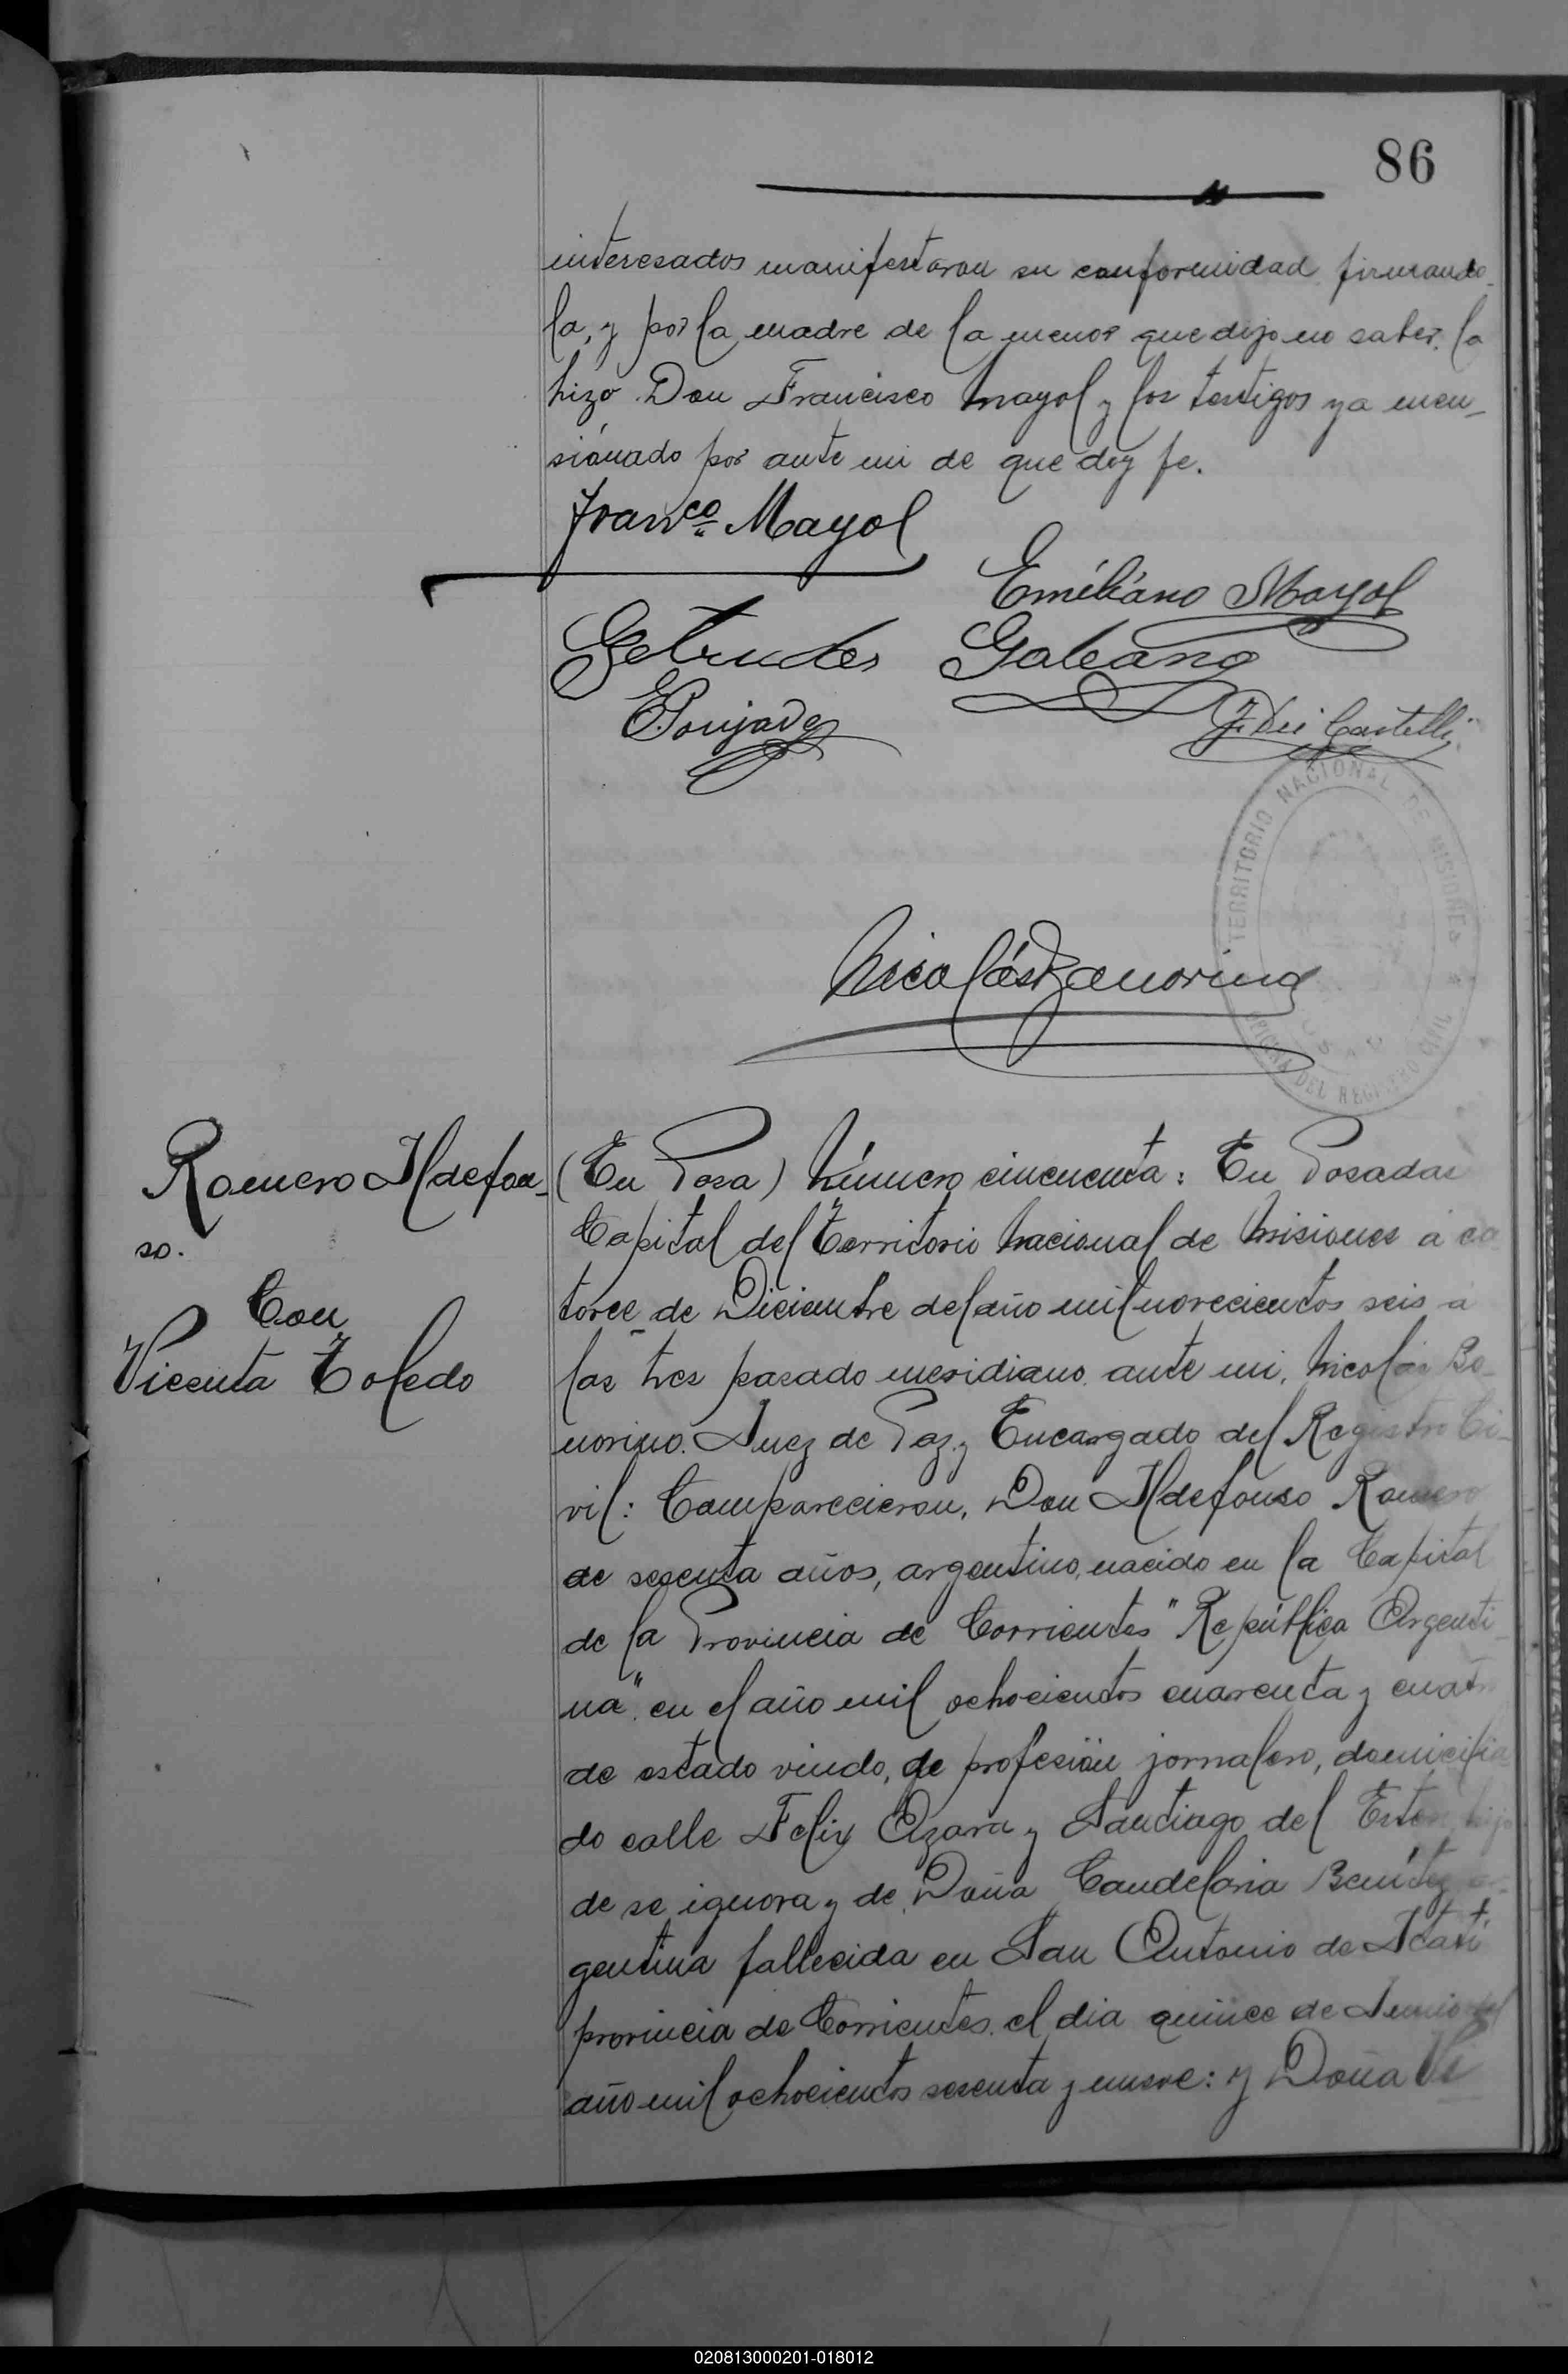 86
interesados manifestaron su conformidad firmando-
la, y por la madre de la menor que dijo no saber, lo
hizo Don Francisco Mayol y los testigos ya men-
sionado por ante mi de que doy fe.
Franco Mayol
Emiliano Mayol
Getrudes Galeano
E. Poujade
F. Dei Castelli
TERRITORIO NACIONAL DE MISIONES
OFICINA DEL REGISTRO CIVIL
Nicolás Bonorino
Romero Ildefon-
so.
Con
Vicenta Toledo
(En Posa) Número cincuenta: En Posadas
Capital del Territorio Nacional de Misiones á ca
torce de Diciembre del año mil novecientos seis á
las tres pasado meridiano ante mi, Nicolás Bo-
norino. Juez de Paz y Encargado del Registro Ci-
vil: Comparecieron, Don Ildefonso Romero
de sesenta años, argentino, nacido en la Capital
de la Provincia de Corrientes "República Argenti-
na" en el año mil ochocientos cuarenta y cuatro
de estado viudo, de profesión jornalero, domicilia
do calle Felix Azara y Santiago del Estero hijo
de se ignora y de Doña Candelaria Benítez ar-
gentina fallecida en San Antonio de Itatí
provincia de Corrientes. el dia quince de Junio del
año mil ochocientos sesenta y nueve: y Doña Vi
020813000201-018012